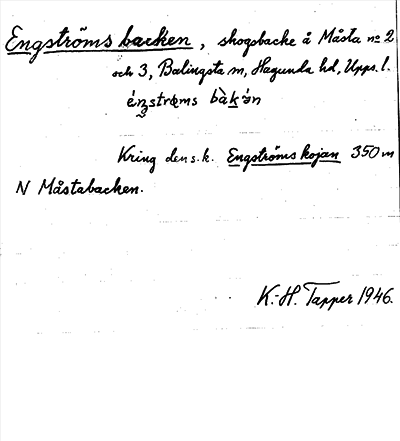 Engströms backen, skogsbacke å Måsta no 2
och 3, Balingsta sn, Hagunda hd, Upps. l.
Kring den s.k. Engströms kojan 350 m
N Måstabacken.
K.-H. Tapper 1946.